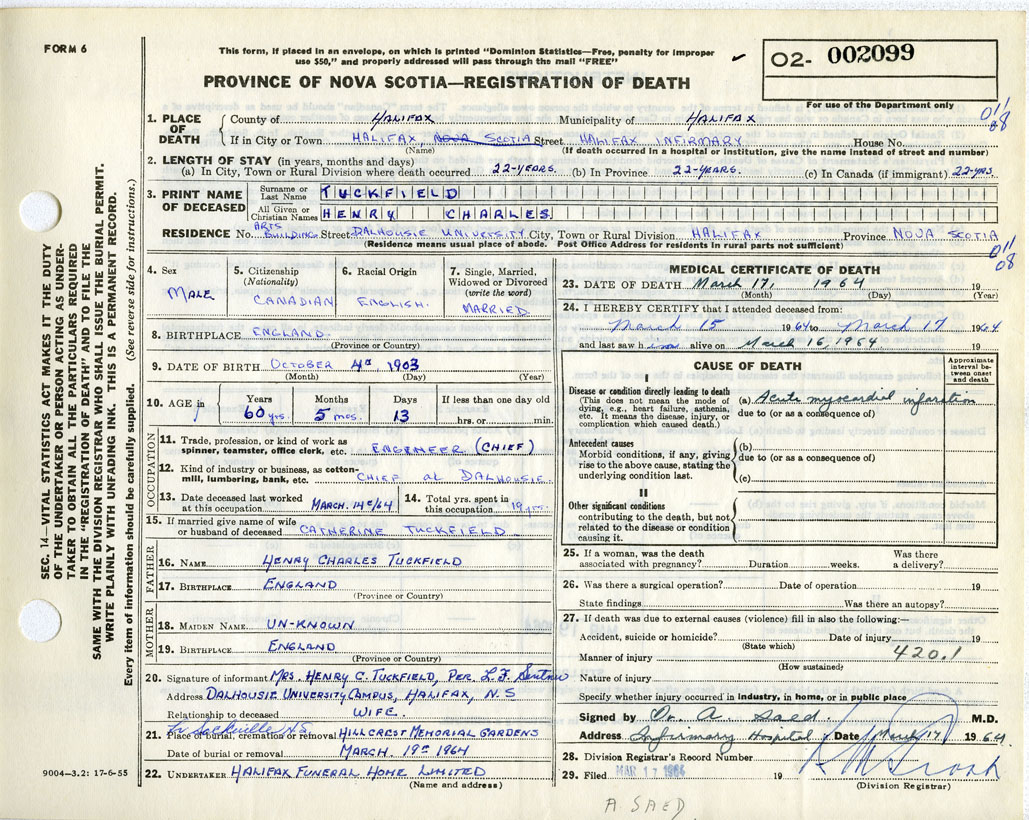 FORM 6
This form, if placed in an envelope, on which is printed "Dominion Statistics—Free, penalty for improper
use $50," and properly addressed will pass through the mail "FREE"
PROVINCE OF NOVA SCOTIA—REGISTRATION OF DEATH
02- 002099
For use of the Department only
011
08
1. PLACE OF DEATH
County of HALIFAX Municipality of HALIFAX
If in City or Town HALIFAX NOVA SCOTIA Street HALIFAX INFIRMARY House No.
(Name) (If death occurred in a hospital or institution, give the name instead of street and number)
2. LENGTH OF STAY (in years, months and days)
(a) In City, Town or Rural Division where death occurred 22-YEARS. (b) In Province 22-YEARS. (c) In Canada (if immigrant) 22-YRS.
3. PRINT NAME OF DECEASED
Surname or Last Name TUCKFIELD
All Given or Christian Names HENRY CHARLES
RESIDENCE No. ARTS BUILDING Street DALHOUSIE UNIVERSITY City, Town or Rural Division HALIFAX Province NOVA SCOTIA
(Residence means usual place of abode. Post Office Address for residents in rural parts not sufficient)
011
08
4. Sex MALE
5. Citizenship (Nationality) CANADIAN
6. Racial Origin ENGLISH.
7. Single, Married, Widowed or Divorced (write the word) MARRIED
8. BIRTHPLACE ENGLAND
(Province or Country)
9. DATE OF BIRTH OCTOBER 4th 1903
(Month) (Day) (Year)
10. AGE in Years Months Days If less than one day old
60 yrs. 5 mos. 13 hrs. or min.
OCCUPATION
11. Trade, profession, or kind of work as
spinner, teamster, office clerk, etc. ENGINEER (CHIEF)
12. Kind of industry or business, as cotton-
mill, lumbering, bank, etc. CHIEF at DALHOUSIE
13. Date deceased last worked
at this occupation MARCH. 14th/64
14. Total yrs. spent in
this occupation 19 yrs.
15. If married give name of wife
or husband of deceased CATHERINE TUCKFIELD
FATHER
16. NAME HENRY CHARLES TUCKFIELD
17. BIRTHPLACE ENGLAND
(Province or Country)
MOTHER
18. MAIDEN NAME UN-KNOWN
19. BIRTHPLACE ENGLAND
(Province or Country)
20. Signature of informant MRS. HENRY C. TUCKFIELD, PER. L.F.
Address DALHOUSIE UNIVERSITY CAMPUS, HALIFAX, N.S
Relationship to deceased WIFE.
Lr Sackville N.S.
21. Place of burial, cremation or removal HILLCREST MEMORIAL GARDENS
Date of burial or removal MARCH. 19th 1964
22. UNDERTAKER HALIFAX FUNERAL HOME LIMITED
(Name and address)
MEDICAL CERTIFICATE OF DEATH
23. DATE OF DEATH March 17, 1964 19
(Month) (Day) (Year)
24. I HEREBY CERTIFY that I attended deceased from:
March 15 1964 to March 17 1964
and last saw him alive on March 16, 1964 19
CAUSE OF DEATH
Approximate interval between onset and death
I
Disease or condition directly leading to death
(This does not mean the mode of
dying, e.g., heart failure, asthenia,
etc. It means the disease, injury, or
complication which caused death.)
(a) Acute myocardial infarction
due to (or as a consequence of)
Antecedent causes
Morbid conditions, if any, giving
rise to the above cause, stating the
underlying condition last.
(b)
due to (or as a consequence of)
(c)
II
Other significant conditions
contributing to the death, but not
related to the disease or condition
causing it.
25. If a woman, was the death
associated with pregnancy? Duration weeks. Was there
a delivery?
26. Was there a surgical operation? Date of operation 19
State findings Was there an autopsy?
27. If death was due to external causes (violence) fill in also the following:—
Accident, suicide or homicide? Date of injury 19
(State which)
420.1
Manner of injury
(How sustained)
Nature of injury
Specify whether injury occurred in industry, in home, or in public place
Signed by Dr. A Saed. M.D.
Address Infirmary Hospital Date March 17 1964
28. Division Registrar's Record Number
29. Filed MAR 17 1964 19
(Division Registrar)
A SAED
SEC. 14—VITAL STATISTICS ACT MAKES IT THE DUTY
OF THE UNDERTAKER OR PERSON ACTING AS UNDER-
TAKER TO OBTAIN ALL THE PARTICULARS REQUIRED
IN THE "REGISTRATION OF DEATH" AND TO FILE THE
SAME WITH THE DIVISION REGISTRAR WHO SHALL ISSUE THE BURIAL PERMIT.
WRITE PLAINLY WITH UNFADING INK. THIS IS A PERMANENT RECORD.
Every item of information should be carefully supplied. (See reverse side for instructions.)
9004—3.2: 17-6-55